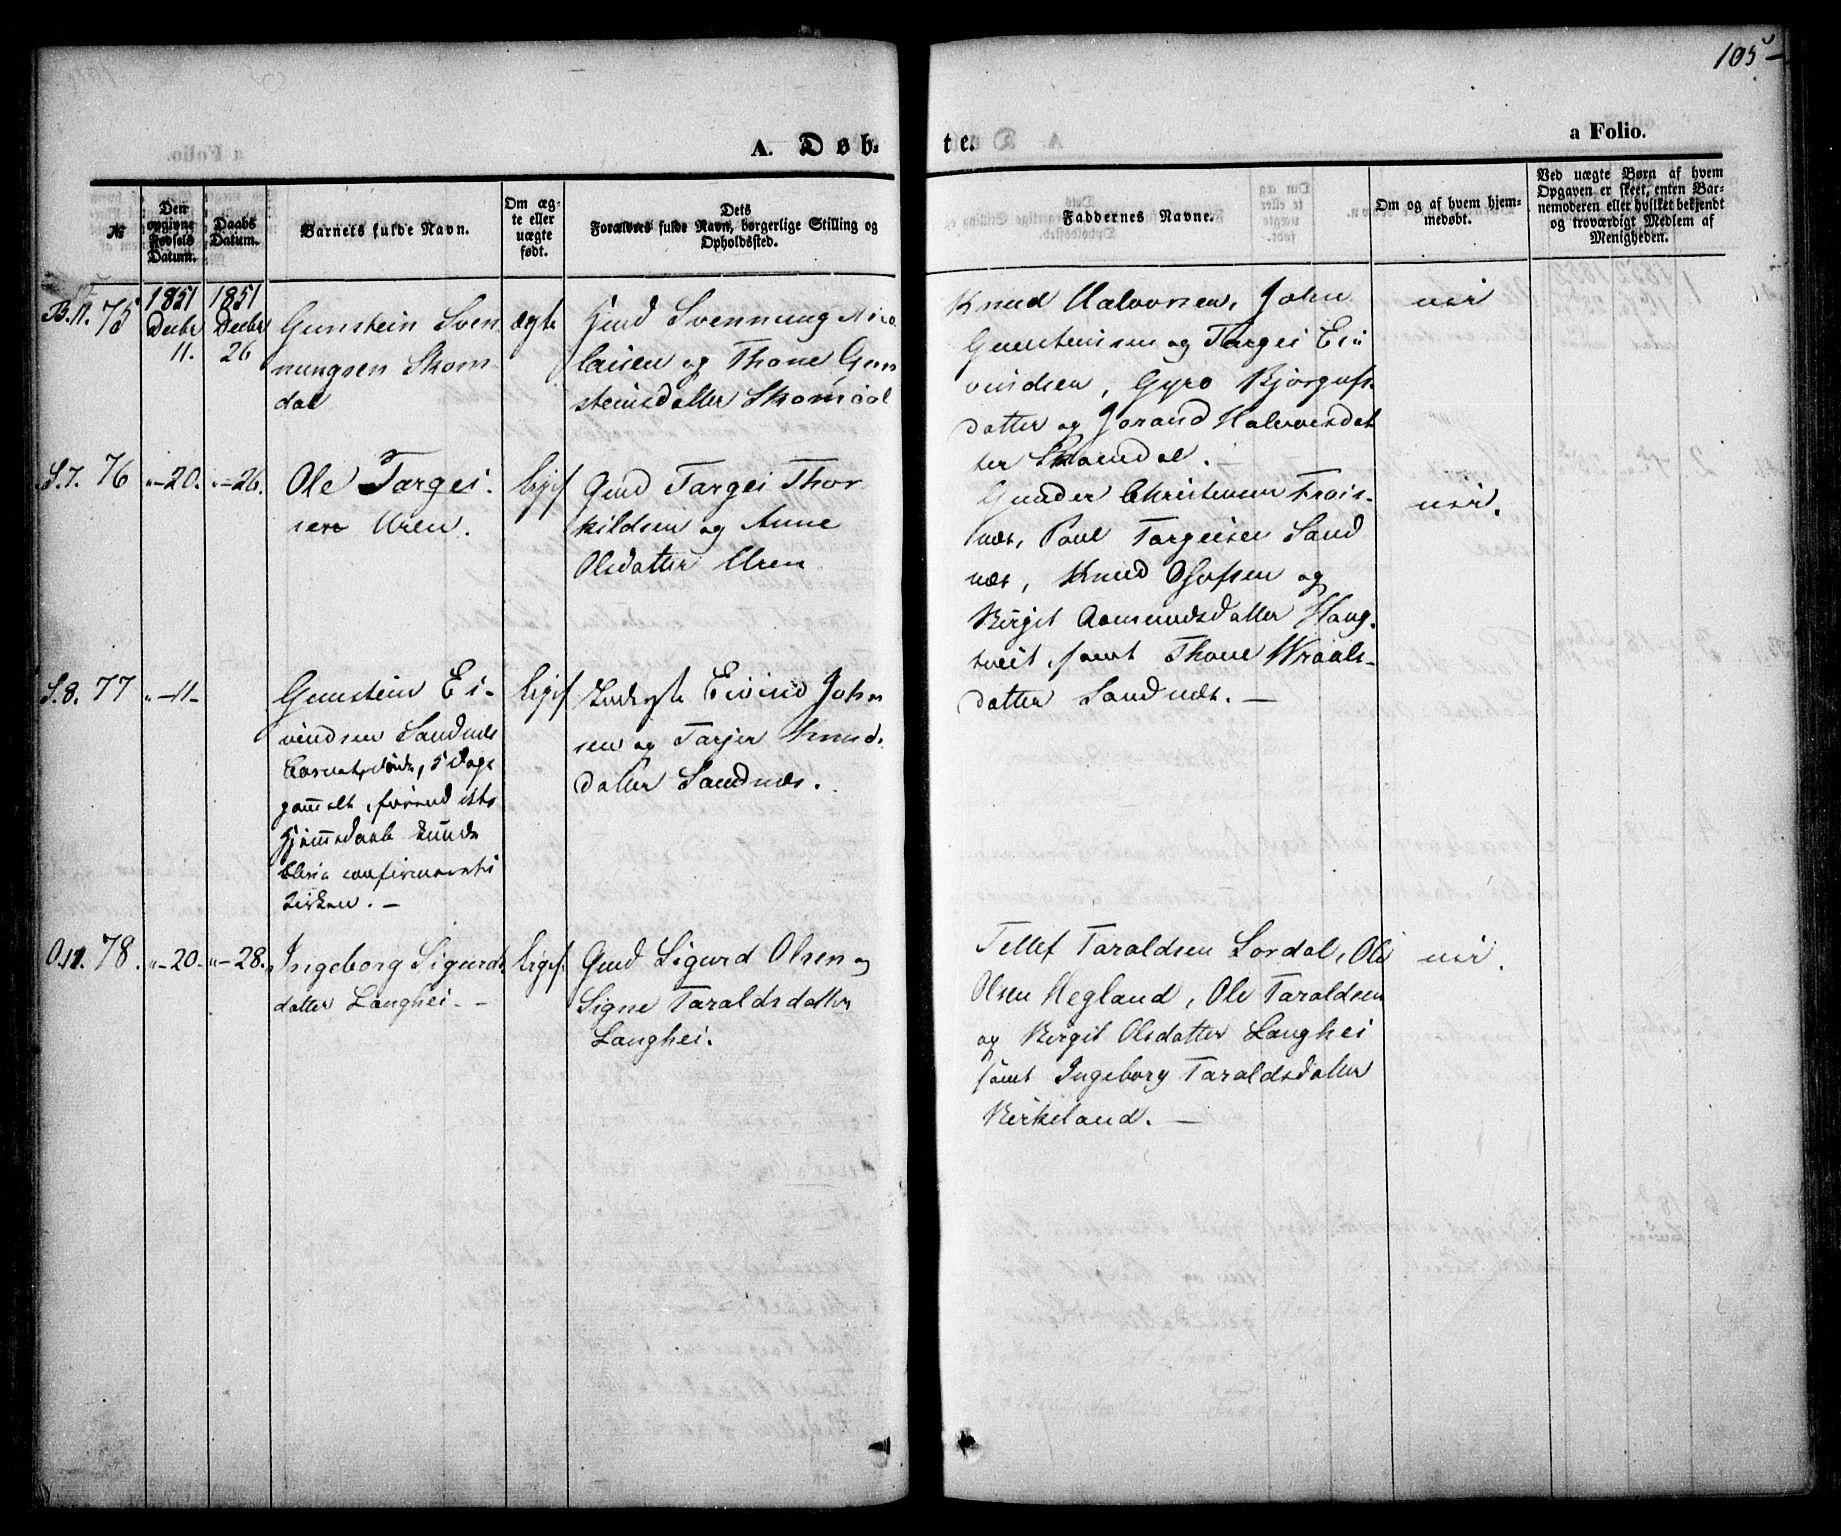 105
a Folio.
A. Døb-
te.
№
Den opgivne Fødsels Datum.
Daabs Datum.
Barnets fulde Navn.
Om ægte eller uægte født.
Dets Forældres fulde Navn, borgerlige Stilling og Opholdssted.
Faddernes Navne.
Om og af hvem hjemmedøbt.
Ved uægte Børn af hvem Opgaven er skeet, enten Barnemoderen eller hvilket bekjendt og troværdigt Medlem af Menigheden.
B. 11. 75
1851
Decbr
11.
1851
Decbr
26
Gunstein Sven
nungsen Skom-
dal
ægte
Gmd Svennung Nico
laisen og Thone Gun
steinsdatter Skomdal
Knud Halvorsen, John
Gunsteinsen og Targei Ei
vindsen, Gyro Bjørgufs
datter og Jorand Halvorsdat
ter Skomdal.
nei
S. 7. 76
" - 20.
" - 26.
Ole Targei-
sen Uren.
liges
Gmd Targei Thor
kildsen og Anne
Olsdatter Uren
Gunder Christensen Frøis-
næs, Paul Targeisen Sand
næs, Knud Olsen og
Birgit Aamundsdatter Haug-
tveit, samt Thone Wraals-
datter Sandnæs. -
nei.
S. 8. 77
" - 11 -
Gunstein Ei-
vindsen Sandnæs
Barnet døde, 5 Dage
gammelt, førend dets
Hjemmedaab kunde
blive confirmeret i
Kirken. -
liges
Eivind Johns
sen og Targjer Knuds
datter Sandnæs.
O. 12. 78.
" - 20 -
" - 28.
Ingeborg Sigurds
datter Langhei. -
ligES
Gmd Sigurd Olsen og
Signe Taraldsdatter
Langhei.
Tellef Taraldsen Lordal, Ole
Olsen Hegland, Ole Taraldsen
og Birgit Olsdatter Langhei
samt Ingeborg Taraldsdatter
Birkeland. -
nei.